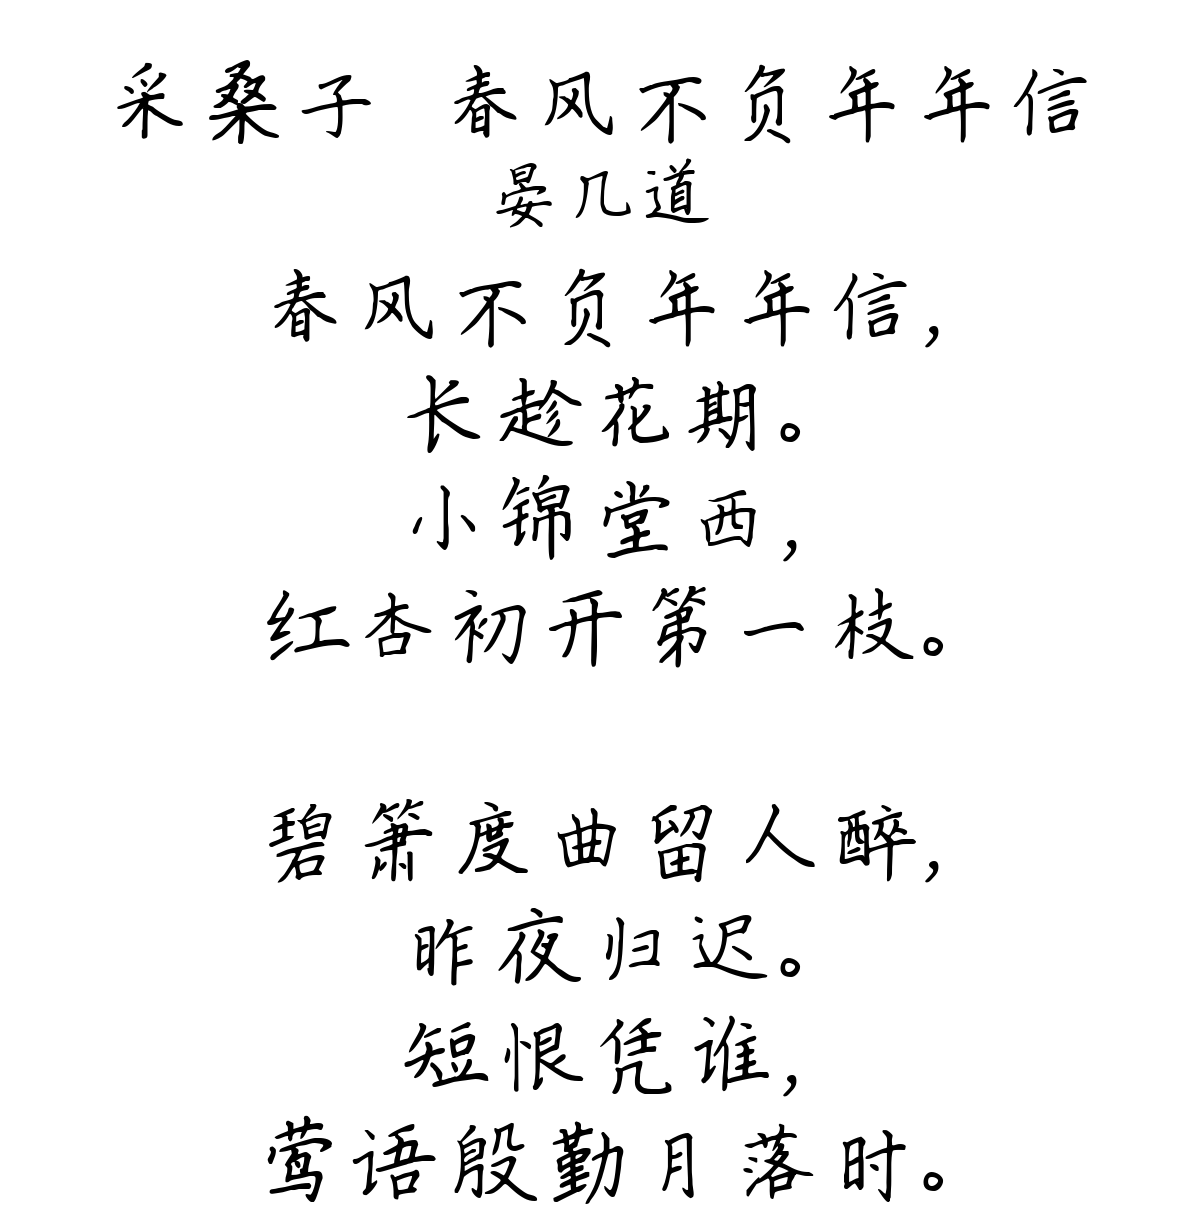 采桑子 春风不负年年信
晏几道
春风不负年年信，
长趁花期。
小锦堂西，
红杏初开第一枝。
碧箫度曲留人醉，
昨夜归迟。
短恨凭谁，
莺语殷勤月落时。